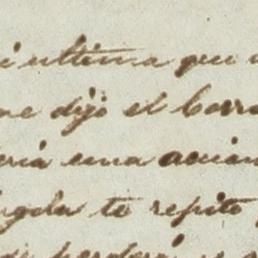 i ultima que
me dijo el borra
eria una accion
ngela te repito